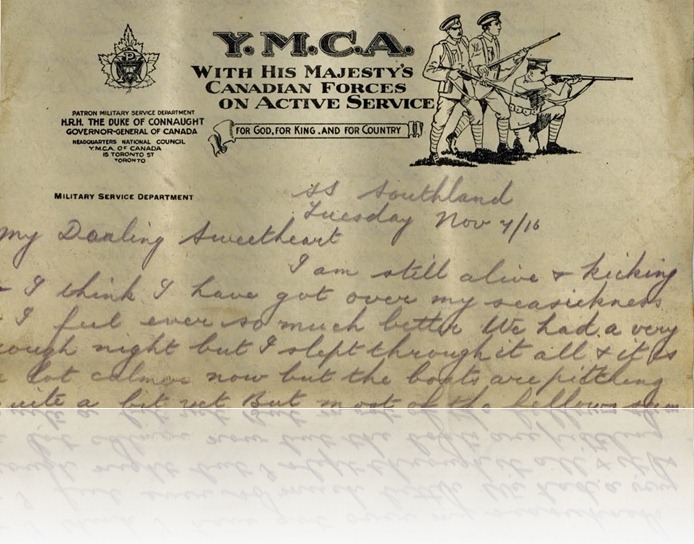 Y.M.C.A.
WITH HIS MAJESTY'S
CANADIAN FORCES
ON ACTIVE SERVICE
FOR GOD, FOR KING, AND FOR COUNTRY
PATRON MILITARY SERVICE DEPARTMENT
H.R.H. THE DUKE OF CONNAUGHT
GOVERNOR-GENERAL OF CANADA
HEADQUARTERS NATIONAL COUNCIL
Y.M.C.A. OF CANADA
15 TORONTO ST
TORONTO
MILITARY SERVICE DEPARTMENT
SS Southland
Tuesday Nov 7/16
My Darling Sweetheart
I am still alive & kicking
I think I have got over my seasickness
I feel ever so much better We had a very
rough night but I slept through it all & it is
a lot calmer now but the boats are pitching
quite a bit yet But most of the fellows